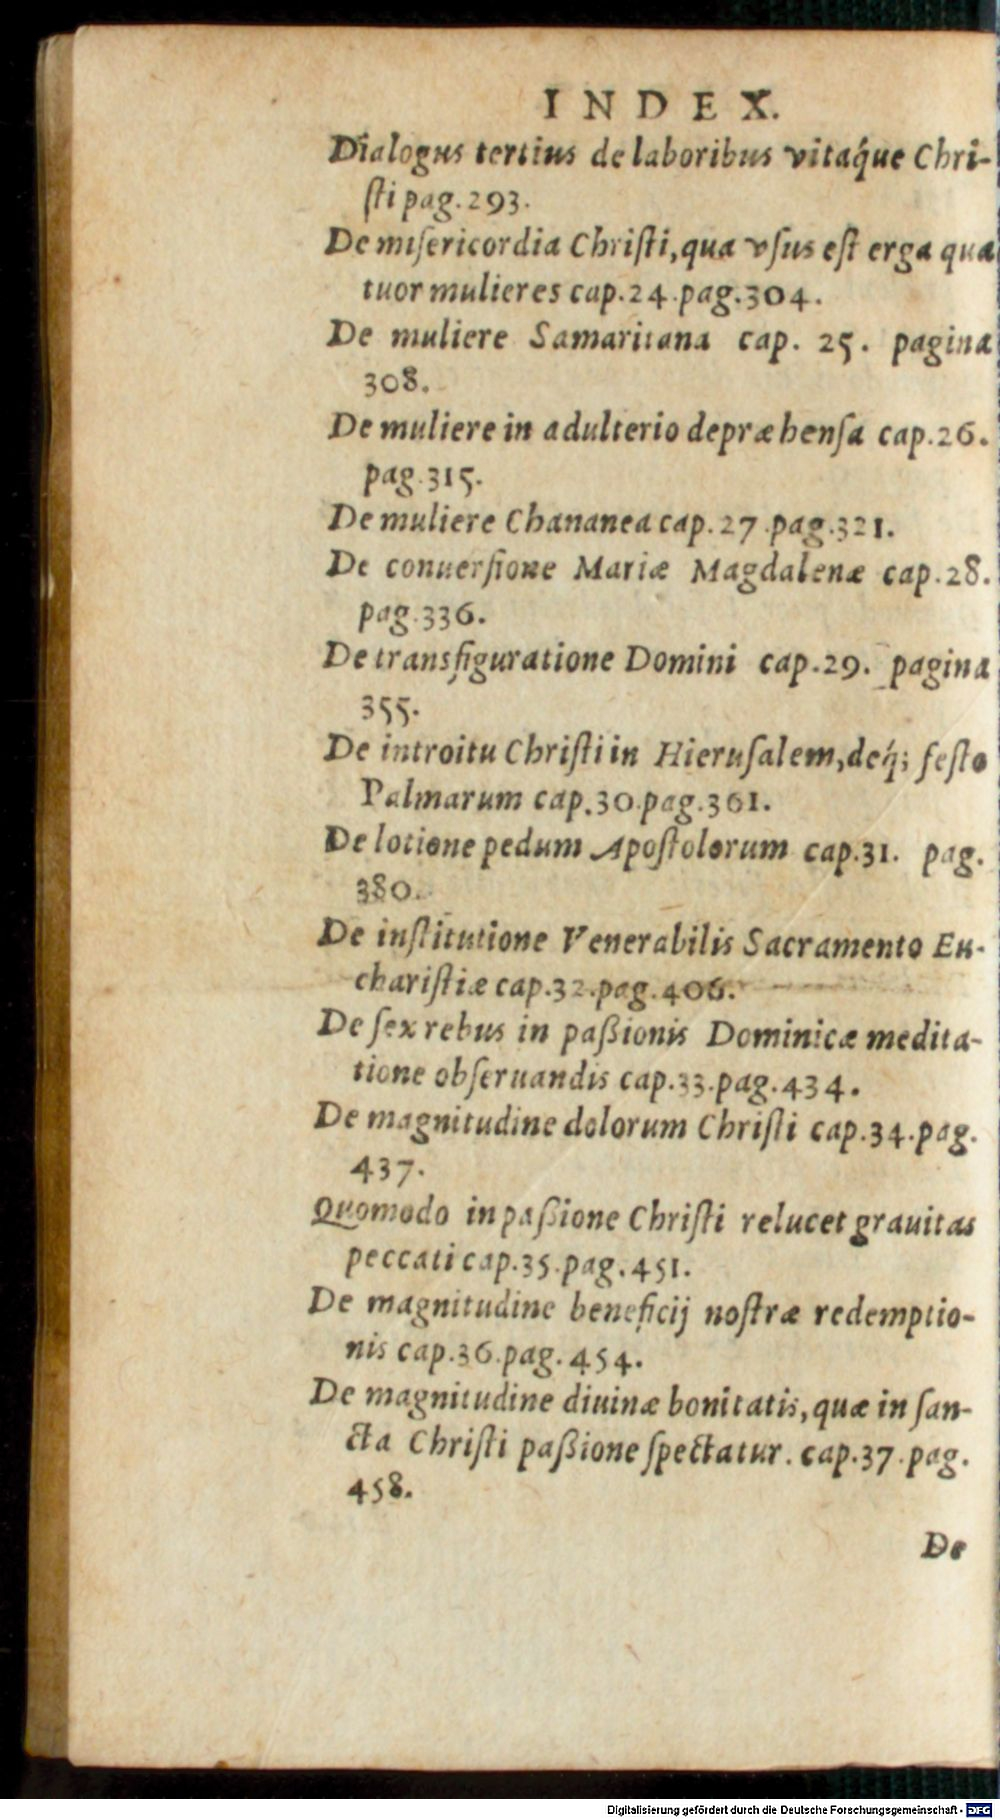 INDEX.
Dialogus tertius de laboribus vitáque Chri-
ſti pag. 293.
De miſericordia Chriſti, qua vſus eſt erga qua
tuor mulieres cap. 24. pag. 304.
De muliere Samaritana cap. 25. pagina
308.
De muliere in adulterio depræhenſa cap. 26.
pag. 315.
De muliere Chananea cap. 27. pag. 321.
De conuerſione Mariæ Magdalenæ cap. 28.
pag. 336.
De transfiguratione Domini cap. 29. pagina
355.
De introitu Chriſti in Hieruſalem, deq́; feſto
Palmarum cap. 30. pag. 361.
De lotione pedum Apoſtolorum cap. 31. pag.
380.
De inſtitutione Venerabilis Sacramento Eu-
chariſtiæ cap. 32. pag. 406.
De ſex rebus in paßionis Dominicæ medita-
tione obſeruandis cap. 33. pag. 434.
De magnitudine dolorum Chriſti cap. 34. pag.
437.
Quomodo in paßione Chriſti relucet grauitas
peccati cap. 35. pag. 451.
De magnitudine beneficij noſtræ redemptio-
nis cap. 36. pag. 454.
De magnitudine diuinæ bonitatis, quæ in ſan-
cta Chriſti paßione ſpectatur. cap. 37. pag.
458.
De
Digitalisierung gefördert durch die Deutsche Forschungsgemeinschaft - DFG